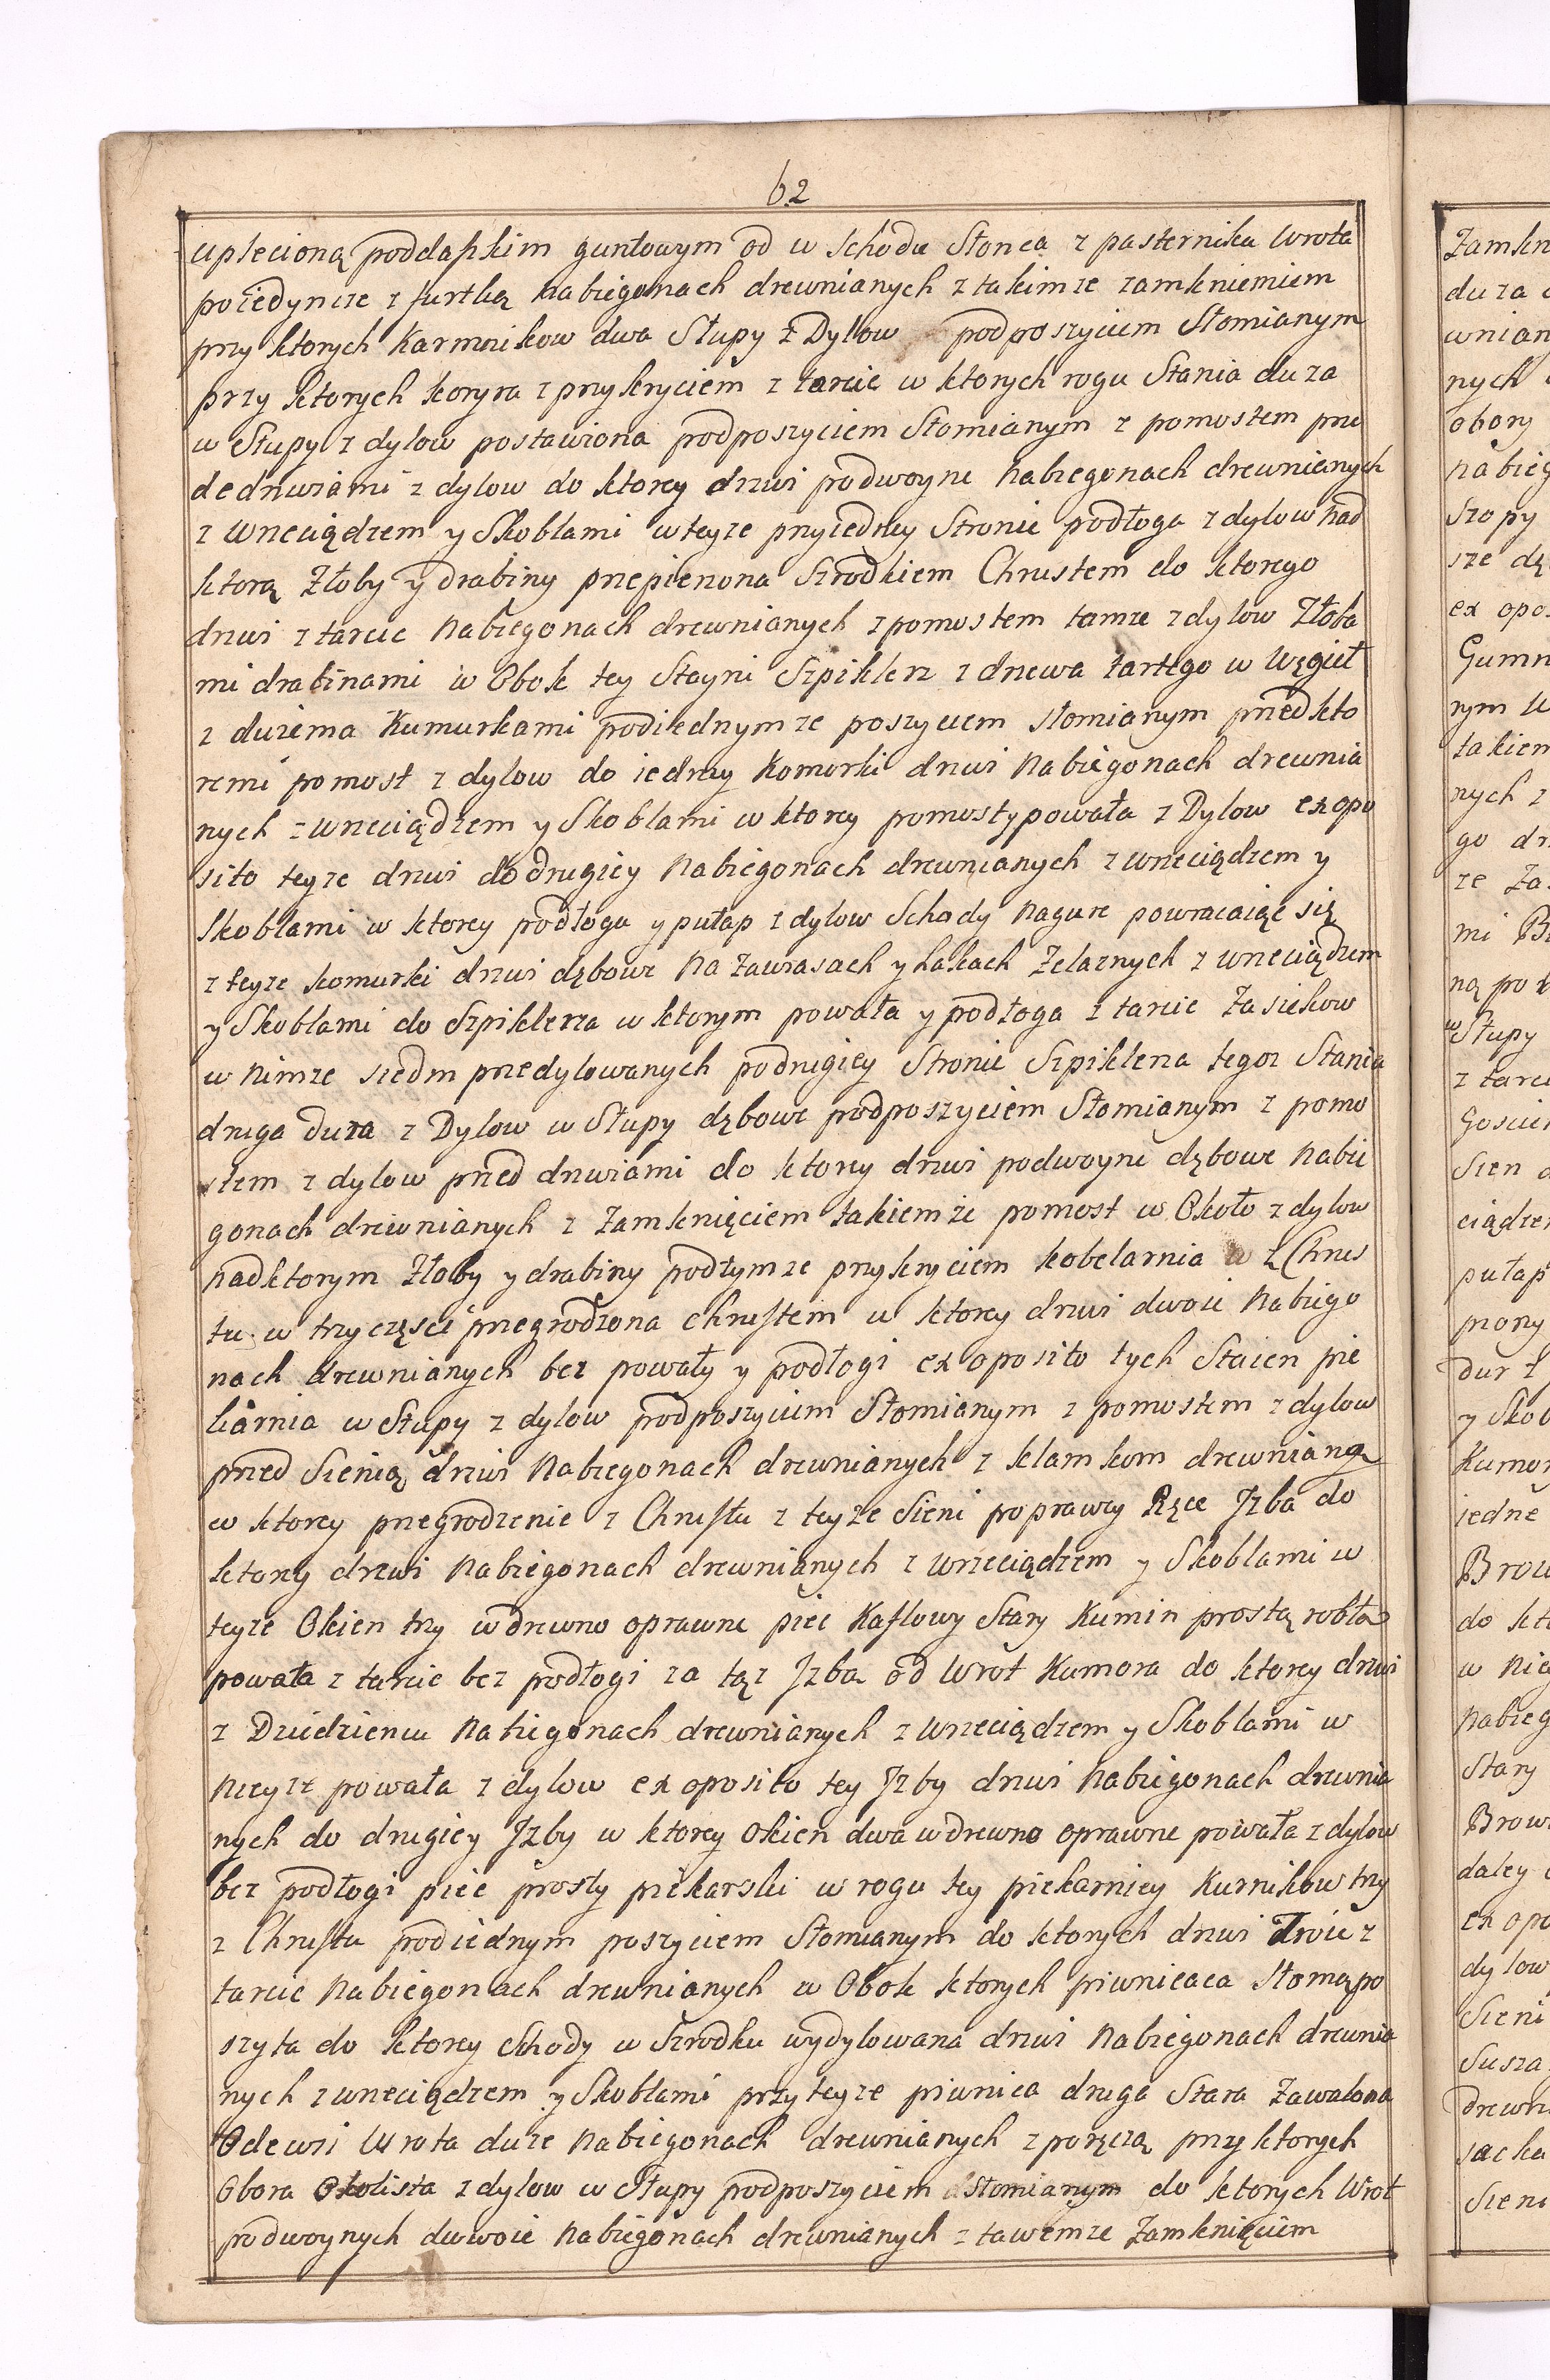 62
uplecioną poddaszkim guntowym od w schodu Słonca z pasternika wrota
poiedyncze z furtką nabiegonach drewnianych z takimze zamkniemiem
przy ktorych Karmnikow dwa Słupy z Dylow podposzyciem Słomianym
przy ktorych koryta z przykryciem z tarcic w ktorych rogu Stania duza
w Słupy z dylow postawiona podposzyciem Słomianym z pomostem prze
dedrzwiami z dylow do ktorey drzwi podwoyne nabiegonach drewnianych
z wrzeciądzem y Skoblami wteyze przyiedney Stronie podłoga z dylow nad
ktorą Złoby y drabiny przepierzona Szrodkiem Chrustem do ktorego
drzwi z tarcic nabiegonach drewnianych z pomostem tamze z dylow Złoba
mi drabinami w Obok tey Stayni Szpiklerz z drzewa tartego w Węgieł
z dwiema Kumurkami podiednymze poszyciem słomianym przed kto
remi pomost z dylow do iedney Komorki drzwi nabiegonach drewnia
nych z wrzeciądzem y Skoblami w ktorey pomost y powała z Dylow exopo
sito teyze drzwi do drugiey nabiegonach drewnianych z wrzeciądzem y
Skoblami w ktorey podłoga y pułap z dylow Schody nagure powracaiąc się
z teyze komurki drzwi dębowe na zawiasach y hakach Zelaznych z wrzeciądzem
y Skoblami do Szpiklerza w ktorym powała y podłoga z tarcic Zasiekow
w nimze siedm przedylowanych podrugiey Stronie Szpiklerza tegoz Stania
druga duza z Dylow w Słupy dębowe podposzyciem Słomianym z pomo
stem z dylow przed drzwiami do ktorey drzwi podwoyne dębowe nabie
gonach drewnianych z zamknięciem takiemże pomost w Około z dylow
nadktorym Złoby y drabiny podtymze przykryciem kobelarnia z Chrus
tu w trzy części przegrodzona chrustem w ktorey drzwi dwoie nabiego
nach drewnianych bez powały y podłogi exoposito tych Staien pie
karnia w Słupy z dylow podposzyciem Słomianym z pomostem z dylow
przed Sienią drzwi nabiegonach drewnianych z klamkom drewnianą
w ktorey przegrodzenie z Chrustu z teyze Sieni poprawey Ręce Jzba do
ktorey drzwi nabiegonach drewnianych z wrzeciądzem y Skoblami w
teyze Okien trzy wdrewno oprawne piec Kaflowy Stary Kumin prostą robtą
powała z tarcic bez podłogi za tąz Jzbą od Wrot Kumora do ktorey drzwi
z Dziedzienca nabiegonach drewnianych z wrzeciądzem y Skoblami w
nieyze powała z dylow exoposito tey Jzby drzwi nabiegonach drewnia
nych do drugiey Jzby w ktorey okien dwa wdrewno oprawne powała z dylow
bez podłogi piec prosty piekarski w rogu tey piekarniey Kurnikow trzy
z Chrustu podiednym poszyciem Słomianym do ktorych drzwi Troie z
tarcic nabiegonach drewnianych w Obok ktorych piwnicaca słomąpo
szyta do ktorey Schody w Szrodku wydylowana drzwi nabiegonach drewnia
nych z wrzeciądzem y Skoblami przyteyze piwnica druga Stara Zawalona
Odewsi Wrota duze nabiegonach drewnianych z poręczą przy ktorych
Obora Okolista z dylow w Słupy podposzyciem słomianym do ktorych Wrot
podwoynych dwoie nabiegonach drewnianych z tawemze Zamknięciem